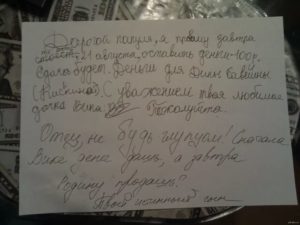 Дорогой папуля, я прошу завтра
21 августа, оставить деньги-100р.
Сдача будет. Деньги для Дины
С уважением твоя любимая
дочка Вика. Пожалуйста.
Отец, не будь глупцом! Сначала
Вике денег дашь, а завтра
Родину продашь?
Твой истинный сын